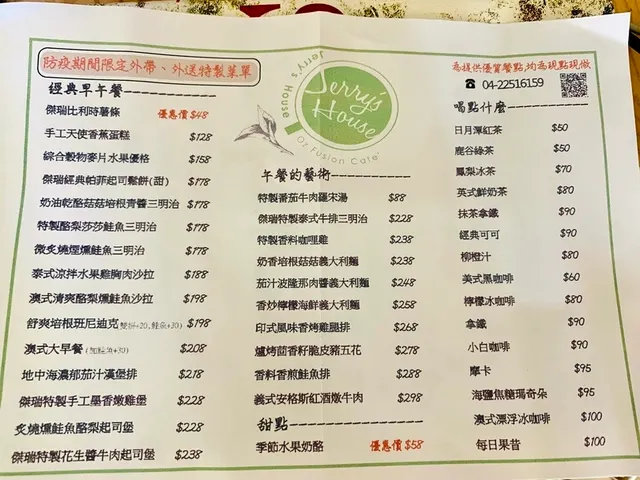 防疫期間限定外帶、外送特製菜單
經典早午餐
傑瑞比利時薯條 優惠價$48
手工天使香蕉蛋糕 $128
綜合穀物麥片水果優格 $158
傑瑞經典帕菲起司鬆餅(甜) $178
奶油乾酪菇菇培根青醬三明治 $178
特製酪梨莎莎鮭魚三明治 $178
微炙燒煙燻鮭魚三明治 $178
泰式涼拌水果雞胸肉沙拉 $188
澳式清爽酪梨燻鮭魚沙拉 $198
舒爽培根班尼迪克(雙拼+20,鮭魚+30) $198
澳式大早餐(加鮭魚+30) $208
地中海濃郁茄汁漢堡排 $218
傑瑞特製手工墨香嫩雞堡 $228
炙燒燻鮭魚酪梨起司堡 $228
傑瑞特製花生醬牛肉起司堡 $238
Jerry's House
Jerry's House
Oz Fusion Cafe'
午餐的藝術
特製番茄牛肉羅宋湯 $88
傑瑞特製泰式牛排三明治 $228
特製香料咖哩雞 $238
奶香培根菇菇義大利麵 $238
茄汁波隆那肉醬義大利麵 $248
香炒檸檬海鮮義大利麵 $258
印式風味香烤雞腿排 $268
爐烤茴香籽脆皮豬五花 $278
香料香煎鮭魚排 $288
義式安格斯紅酒燉牛肉 $298
甜點
季節水果奶酪 優惠價$58
為提供優質餐點,均為現點現做
☎ 04-22516159
喝點什麼
日月潭紅茶 $50
鹿谷綠茶 $50
鳳梨冰茶 $70
英式鮮奶茶 $80
抹茶拿鐵 $90
經典可可 $90
柳橙汁 $80
美式黑咖啡 $60
檸檬冰咖啡 $80
拿鐵 $90
小白咖啡 $90
摩卡 $95
海鹽焦糖瑪奇朵 $95
澳式漂浮冰咖啡 $100
每日果昔 $100